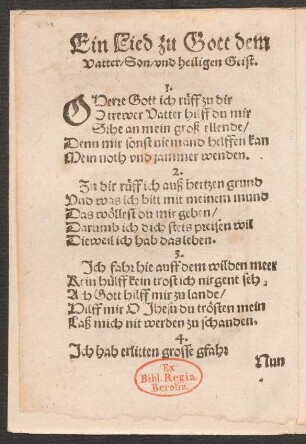 Ein Lied zu Gott dem
Vatter/Son/vnd heiligen Geist.
1.
O Herre Gott ich rüff zu dir
O trewer Vatter hilff du mir
Sihe an mein groß ellende/
Denn mir sonst niemand helffen kan
Mein noth vnd jammer wenden.
2.
Zu dir rüff ich auß hertzen grund
Vnd was ich bitt mit meinem mund
Das wöllest du mir geben/
Darumb ich dich stets preisen wil
Dieweil ich hab das leben.
3.
Ich fahr hie auff dem wilden meer
Kein hülff kein trost ich nirgent seh
Ach Gott hilff mir zu lande/
Hilff mir O Jhesu du trösten mein
Laß mich nit werden zu schanden.
4.
Ich hab erlitten grosse gfahr
Nun
Ex
Bibl. Regia
Berolin.